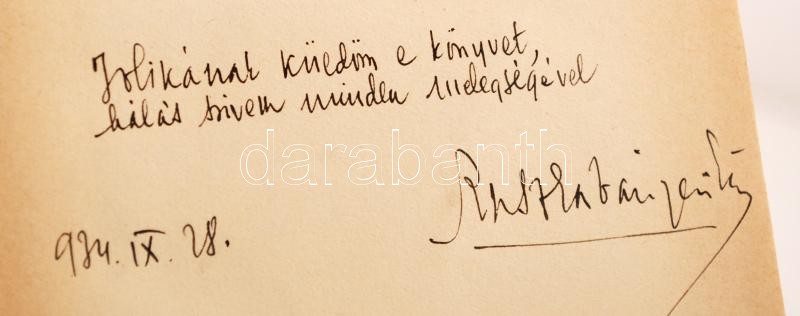 Jolikának küldöm e könyvet,
hálás szivem minden melegségével
darabanth
934. IX. 28.